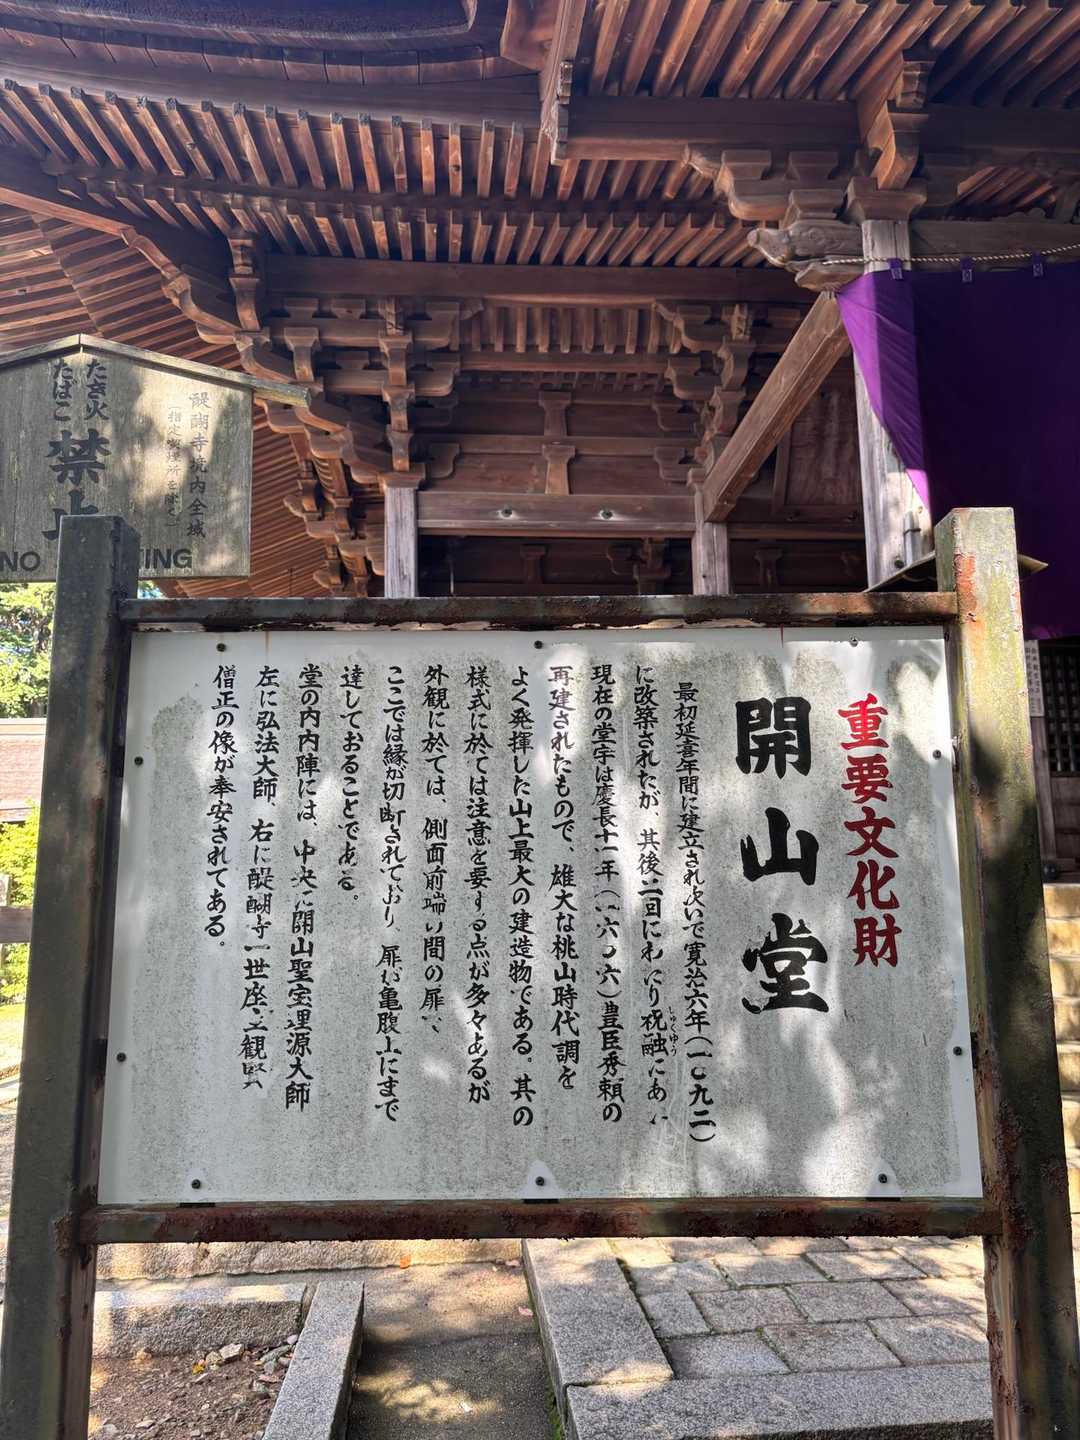 重要文化財
開山堂
最初延喜年間に建立され次いで寛治六年(一〇九二)
に改築されたが、其後二回にわたり祝融にあ
しゅくゆう
現在の堂宇は慶長十一年(一六〇六)豊臣秀頼の
再建されたもので、雄大な桃山時代調を
よく発揮した山上最大の建造物である。其の
様式に於ては注意を要する点が多々あるが
外観に於ては、側面前端の間の扉、
ここでは縁が切断されており、扉が亀腹上にまで
達しておることである。
堂の内内陣には、中央に開山聖宝理源大師
左に弘法大師、右に醍醐寺一世座主観賢
僧正の像が奉安されてある。
醍醐寺境内全域
(指定喫煙所を除く)
たき火
たばこ
禁止
NO ING